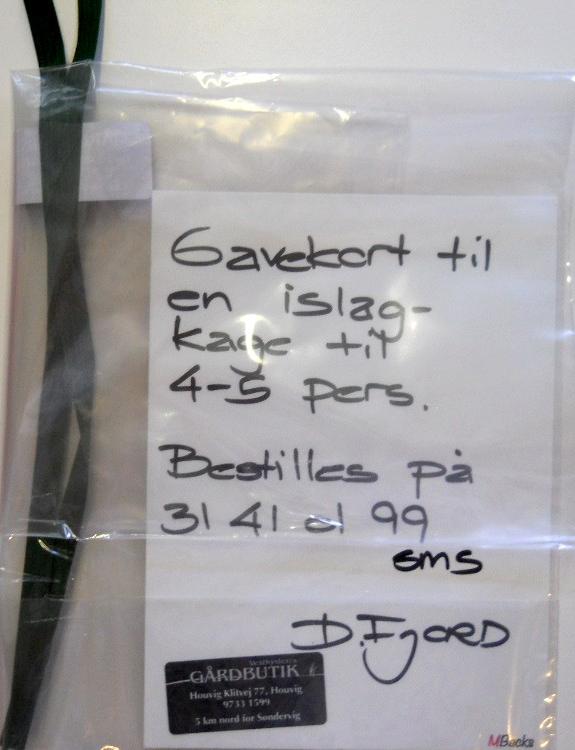 Gavekort til
en islag-
kage til
4-5 pers.
Bestilles på
31 41 01 99
sms
D.Fjord
Vestkystens
GÅRDBUTIK
Houvig Klitvej 77, Houvig
9733 1599
5 km nord for Søndervig
MBacks